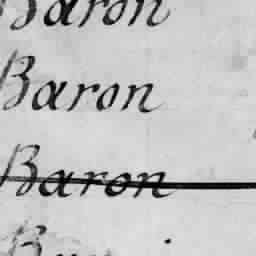 Baron
Baron
Baron